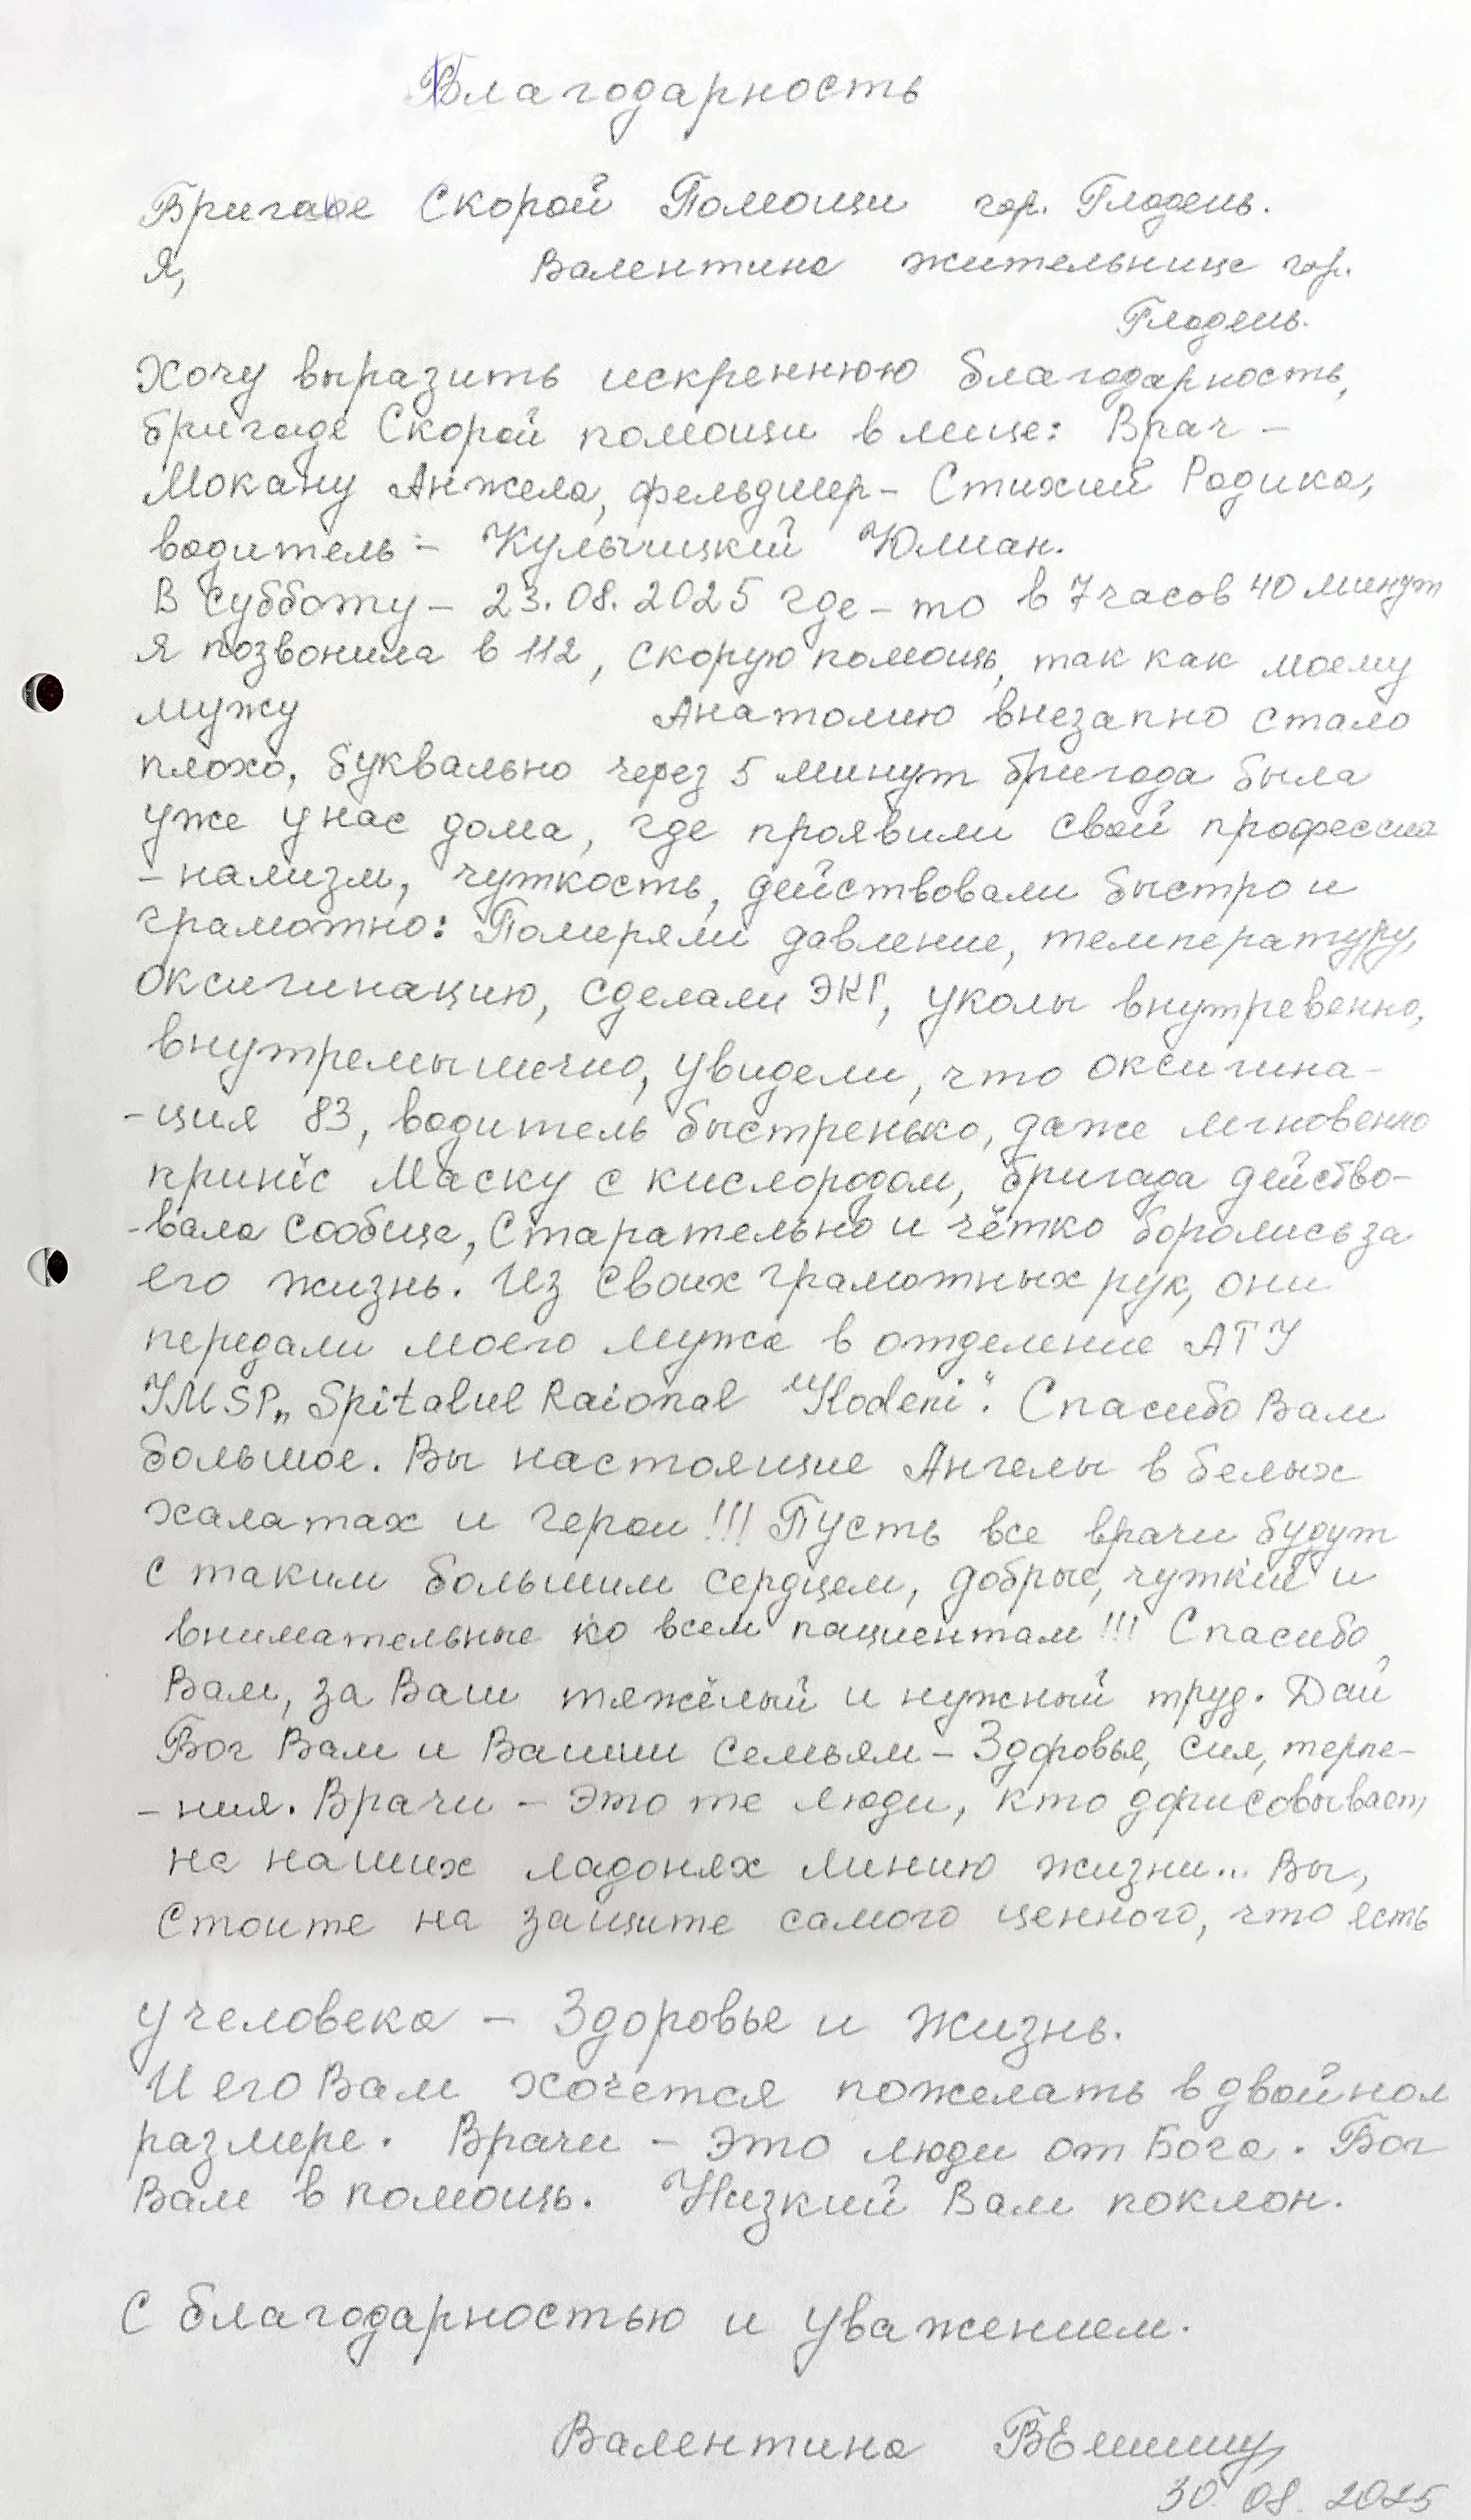 Благодарность
Бригаде Скорой Помощи гор. Глодень.
Я, Валентина жительница гор.
Глодень.
Хочу выразить искреннюю благодарность,
бригаде Скорой помощи в лице: Врач -
Мокану Анжела, фельдшер - Стихий Родика,
водитель - Кульчицкий Юлиан.
В субботу - 23.08.2025 где-то в 7 часов 40 минут
я позвонила в 112, скорую помощь, так как моему
мужу Анатолию внезапно стало
плохо, буквально через 5 минут бригада была
уже у нас дома, где проявили свой профессио
- нализм, чуткость, действовали быстро и
грамотно: Померяли давление, температуру,
оксигинацию, сделали ЭКГ, уколы внутревенно,
внутремышечно, увидели, что оксигина-
-ция 83, водитель быстренько, даже мгновенно
принёс Маску с кислородом, бригада действо-
-вала сообща, Старательно и чётко боролись за
его жизнь. Из своих грамотных рук, они
передали моего мужа в отделение АТУ
IMSP„ Spitalul Raional "Glodeni". Спасибо Вам
большое. Вы настоящие Ангелы в белых
халатах и герои!!! Пусть все врачи будут
с таким большим сердцем, добрые, чуткий и
внимательные ко всем пациентам!!! Спасибо
Вам, за Ваш тяжёлый и нужный труд. Дай
Бог Вам и Вашим семьям - Здоровья, сил, терпе-
- ния. Врачи - это те люди, кто дорисовывает,
на наших ладонях линию жизни... Вы,
Стоите на защите самого ценного, что есть
у человека - Здоровье и жизнь.
И его Вам хочется пожелать в двойном
размере. Врачи - это люди от Бога. Бог
Вам в помощь. Низкий Вам поклон.
С благодарностью и уважением.
Валентина
30.08.2025